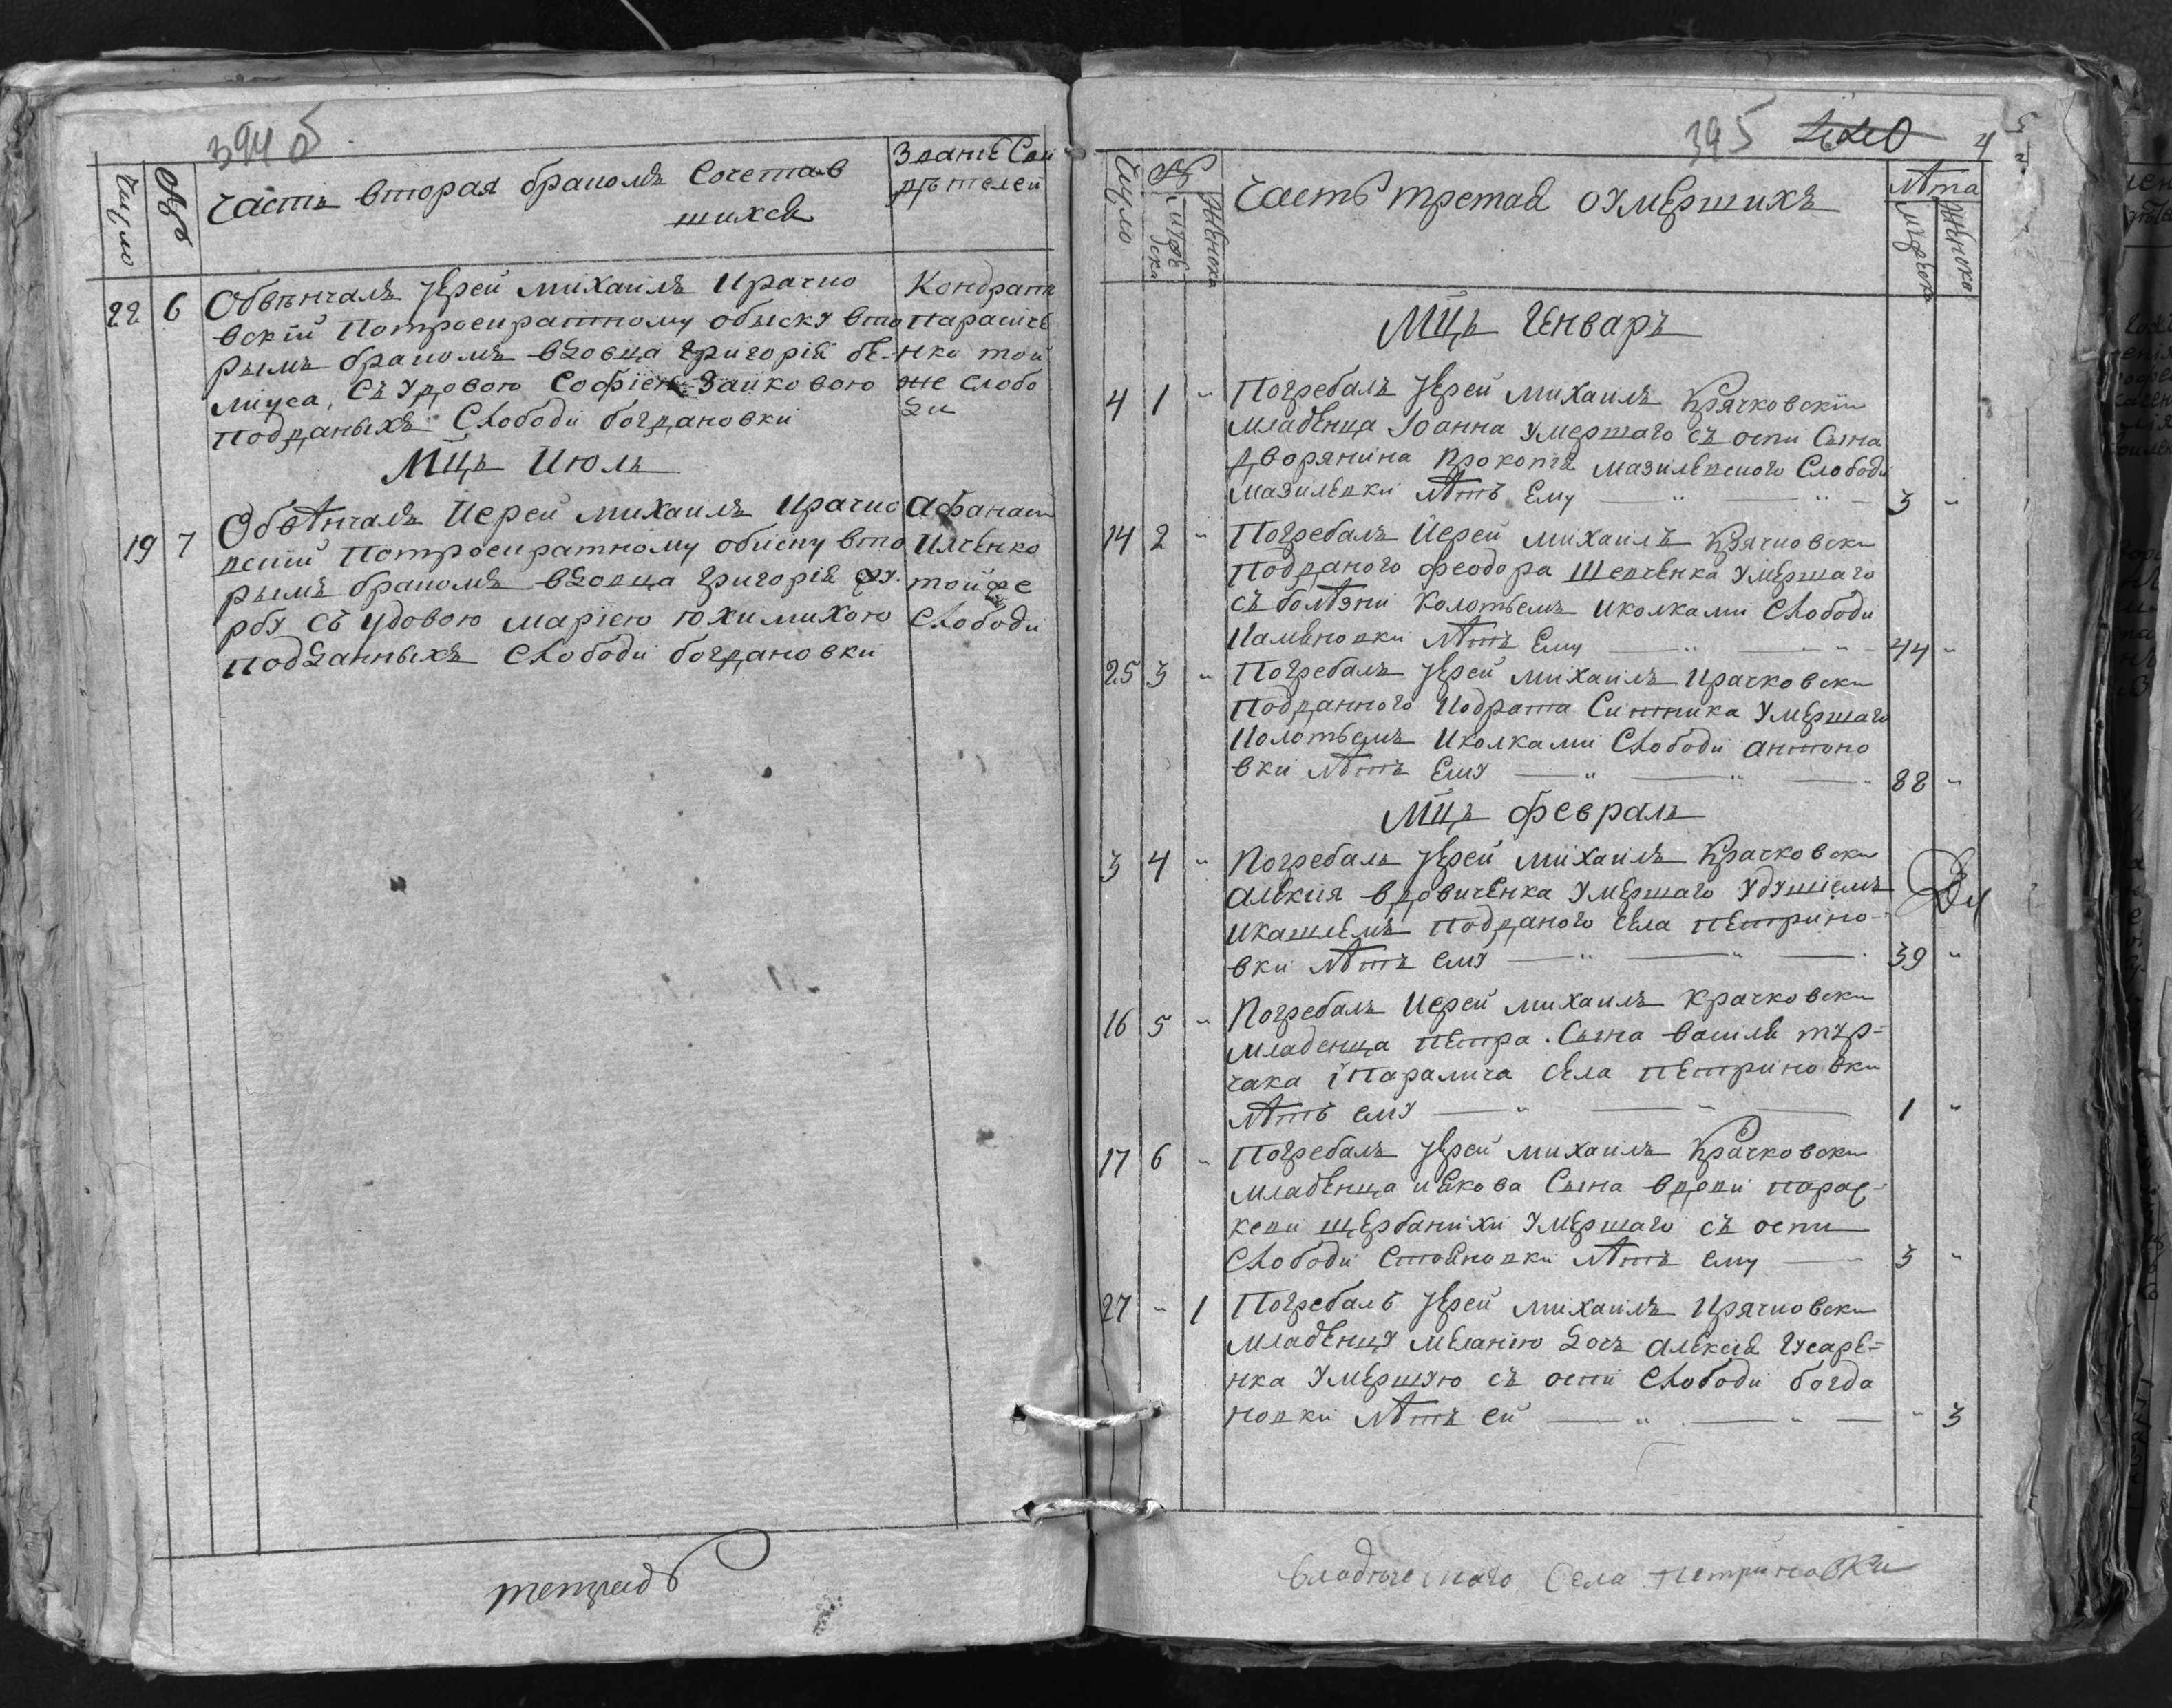 394 об
Число
№
Часть вторая бракомъ Сочетав
шихся
Званіе Сви
дѣтелей
22 6 Обвѣнчалъ Іерей михаилъ Крачко
вскій Потроекратному обыску вто
рымъ бракомъ вдовца Григорія бе-
лiуса, Съ удовою Софіею Зайковою
подданыхъ Слободи богдановки
Кондратъ
Параще
нко той
же слобо
ди
Мцъ Июль
19 7 Обвѣнчалъ Иерей михаилъ Крачко
вскій Потроекратному обиску вто
рымъ бракомъ вдовца Григорія
рбу съ удовою маріею юхимихою
подданныхъ Слободи богдановки
Афанаси
Илченко
той же
Слободи
тетрадь
395 4
Число
№
мужеска
женска
Часть третая оумершихъ
лѣта
мужеска
женска
Мцъ Генваръ
4 1 " Погребалъ Іерей михаилъ Крячковскій
младенца Іоанна умершаго съ оспи Сына
дворянина Прокопія мазилевского Слободи
мазилевки лѣтъ Ему — " — " — 3 "
14 2 " Погребалъ Іерей михаилъ Крячковски
подданого феодора Шевченка умершаго
съ болѣзни Колотьемъ иколками Слободи
Каменовки лѣтъ Ему — " — " — 44 "
25 3 " Погребалъ Іерей михаилъ Крачковски
подданного Кодрата Ситника умершаго
Колотьемъ Иколками Слободи антоно
вки лѣтъ Ему — " — " — 88 "
Мцъ февраль
3 4 " Погребалъ Іерей михаилъ Крачковски
алексія вдовиченка умершаго удушіемъ
икашлемъ подданого села петрино-
вки лѣтъ ему — " — " — 39 "
16 5 " Погребалъ Иерей михаилъ крачковски
младенца петра Сына василя тур-
чака ѿпаралича села петриновки
лѣтъ ему — " — " — 1 "
17 6 " Погребалъ Іерей михаилъ Крачковски
младенца иякова Сына вдови парас-
кеви щербанихи умершаго съ оспи
Слободи Стояновки лѣтъ ему — 3 "
27 " 1 Погребалъ Іерей михаилъ Крячковски
младенцу меланію дочь алексія гусаре-
нка умершую съ оспи Слободи богда
новки лѣтъ ей — " — " — " 3
Села петриновки